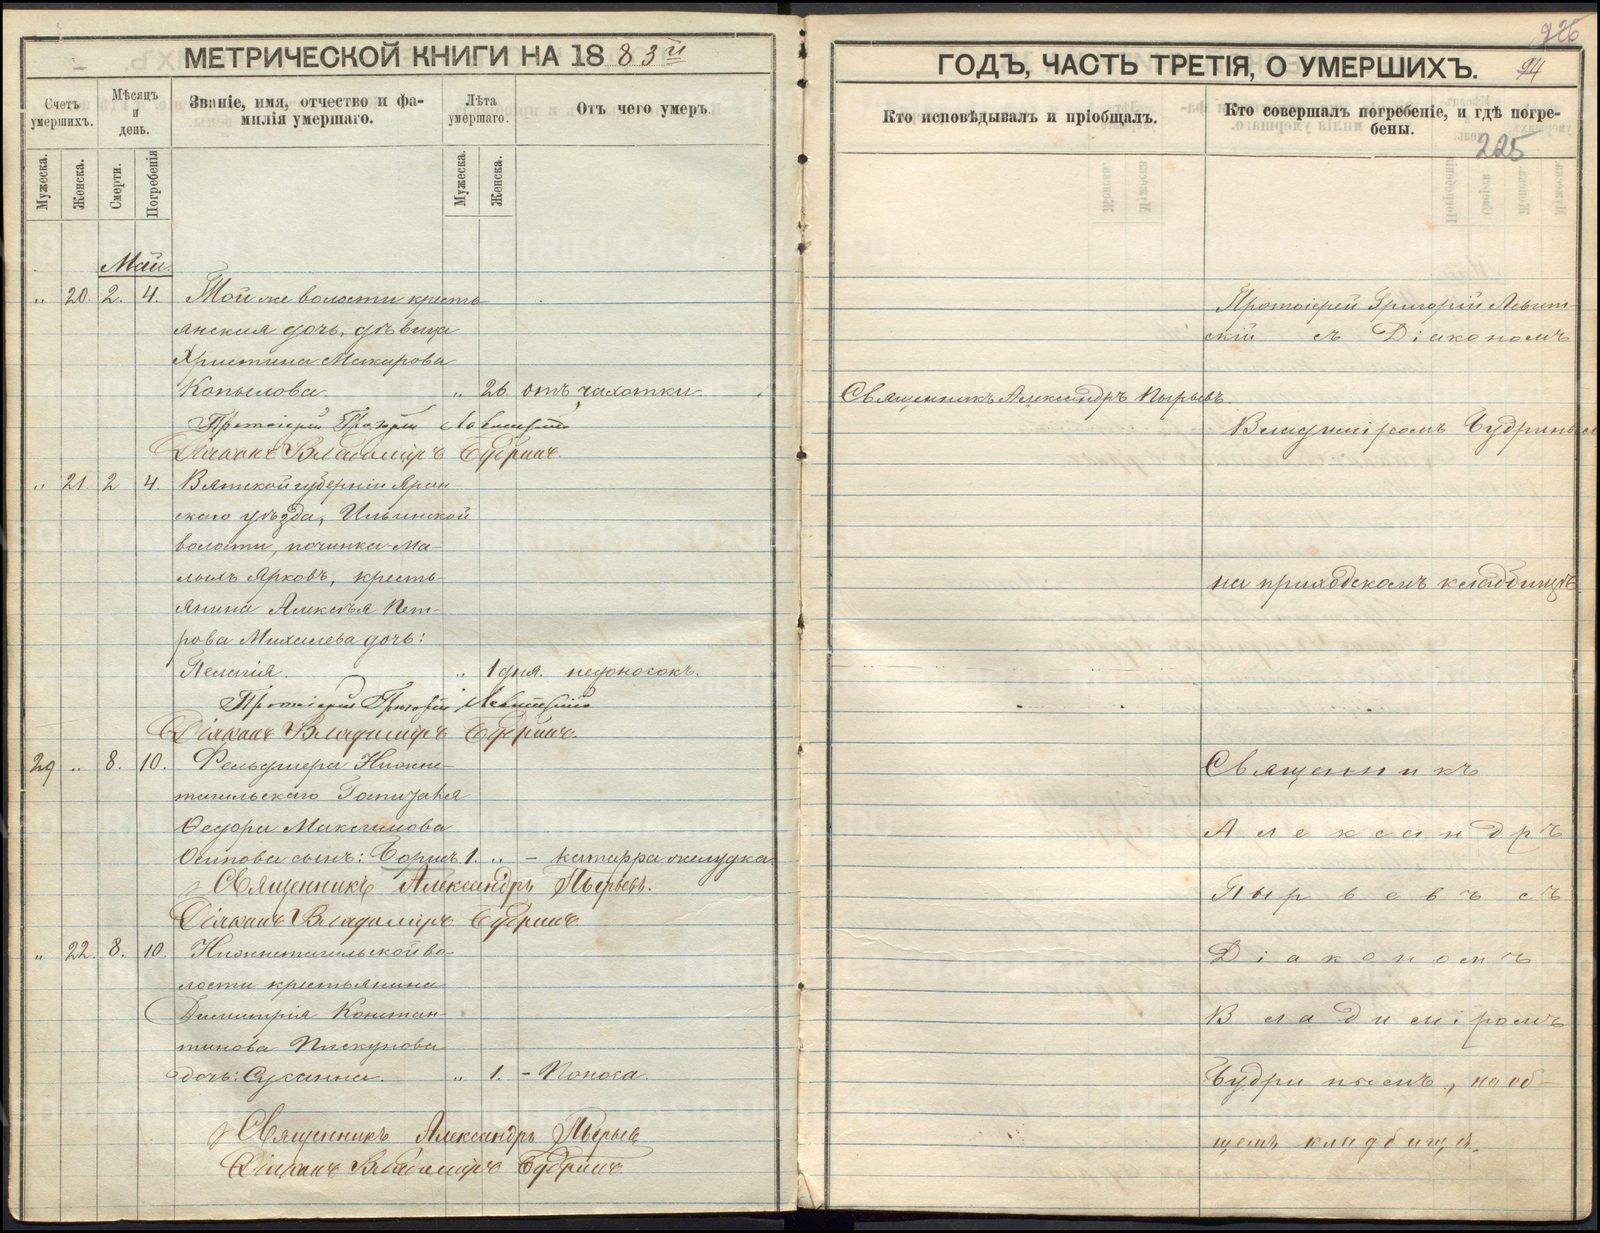 МЕТРИЧЕСКОЙ КНИГИ НА 1883й
Счетъ умершихъ.
Мѣсяцъ и день.
Званіе, имя, отчество и фамилія умершаго.
Лѣта умершаго.
Отъ чего умеръ.
Мужеска.
Женска.
Смерти.
Погребенія
Мужеска.
Женска.
Май.
„ 20. 2. 4. Той же волости кресть
янская дочь, дѣвица
Христина Макарова
Копылова. „ 26 отъ чахотки.
Протоіерей Григорій Левитскій
Діаконъ Владиміръ Будринъ.
„ 21 2 4. Вятской губерніи Яран-
скаго уѣзда, Ильинской
волости, починка Ма-
лыхъ Ярковъ, кресть-
янина Алексѣя Пет-
рова Михалева дочь:
Пелагія. „ 1 дня. недоносокъ.
Протоіерей Григорій Левитскій
Діаконъ Владиміръ Будринъ.
29 „ 8. 10. Фельдшера Нижне-
тагильскаго Госпиталя
Ѳедора Максимова
Осипова сынъ: Борисъ 1. „ - катарра желудка.
Священникъ Александръ Пырьевъ.
Діаконъ Владиміръ Будринъ.
„ 22. 8. 10. Нижнетагильской во-
лости крестьянина
Димитрія Констан-
тинова Пискунова
дочь: Сусанна. „ 1. - Поноса.
Священникъ Александръ Пырьев
Діаконъ Владиміръ Будринъ
926
ГОДЪ, ЧАСТЬ ТРЕТІЯ, О УМЕРШИХЪ.
94
Кто исповѣдывалъ и пріобщалъ.
Кто совершалъ погребеніе, и гдѣ погребены.
225
Протоіерей Григорій Левит-
скій съ Діакономъ
Священникъ Александръ Пырьевъ
Владиміромъ Будринымъ
на приходскомъ кладбищѣ
Священникъ
Александръ
Пырьевъ съ
Діакономъ
Владиміромъ
Будринымъ, на об-
щемъ кладбищѣ.